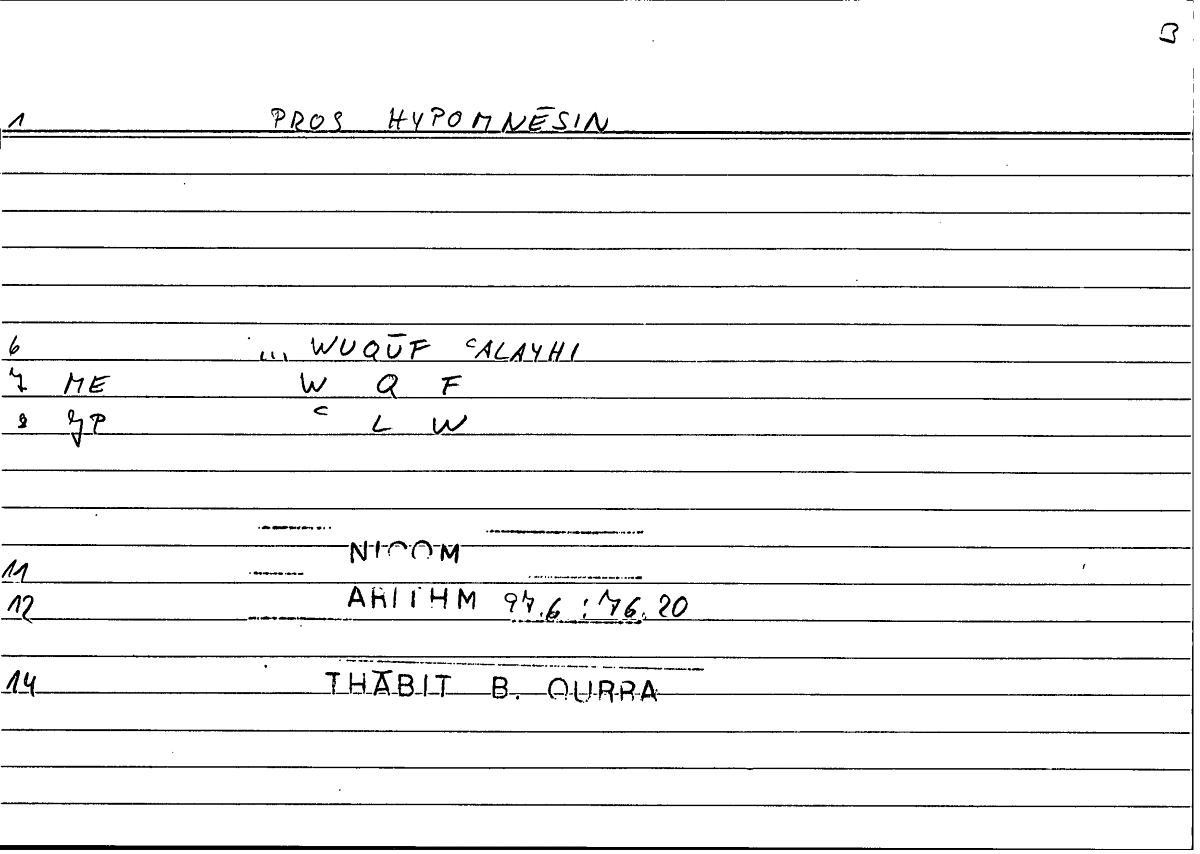 B
1 PROS HYPOMNĒSIN
6 ... WUQŪF ʿALAYHI
7 ME W Q F
8 JP ʿ L W
NICOM
11
12 ARITHM 97.6 : 76.20
14 THĀBIT B. QURRA